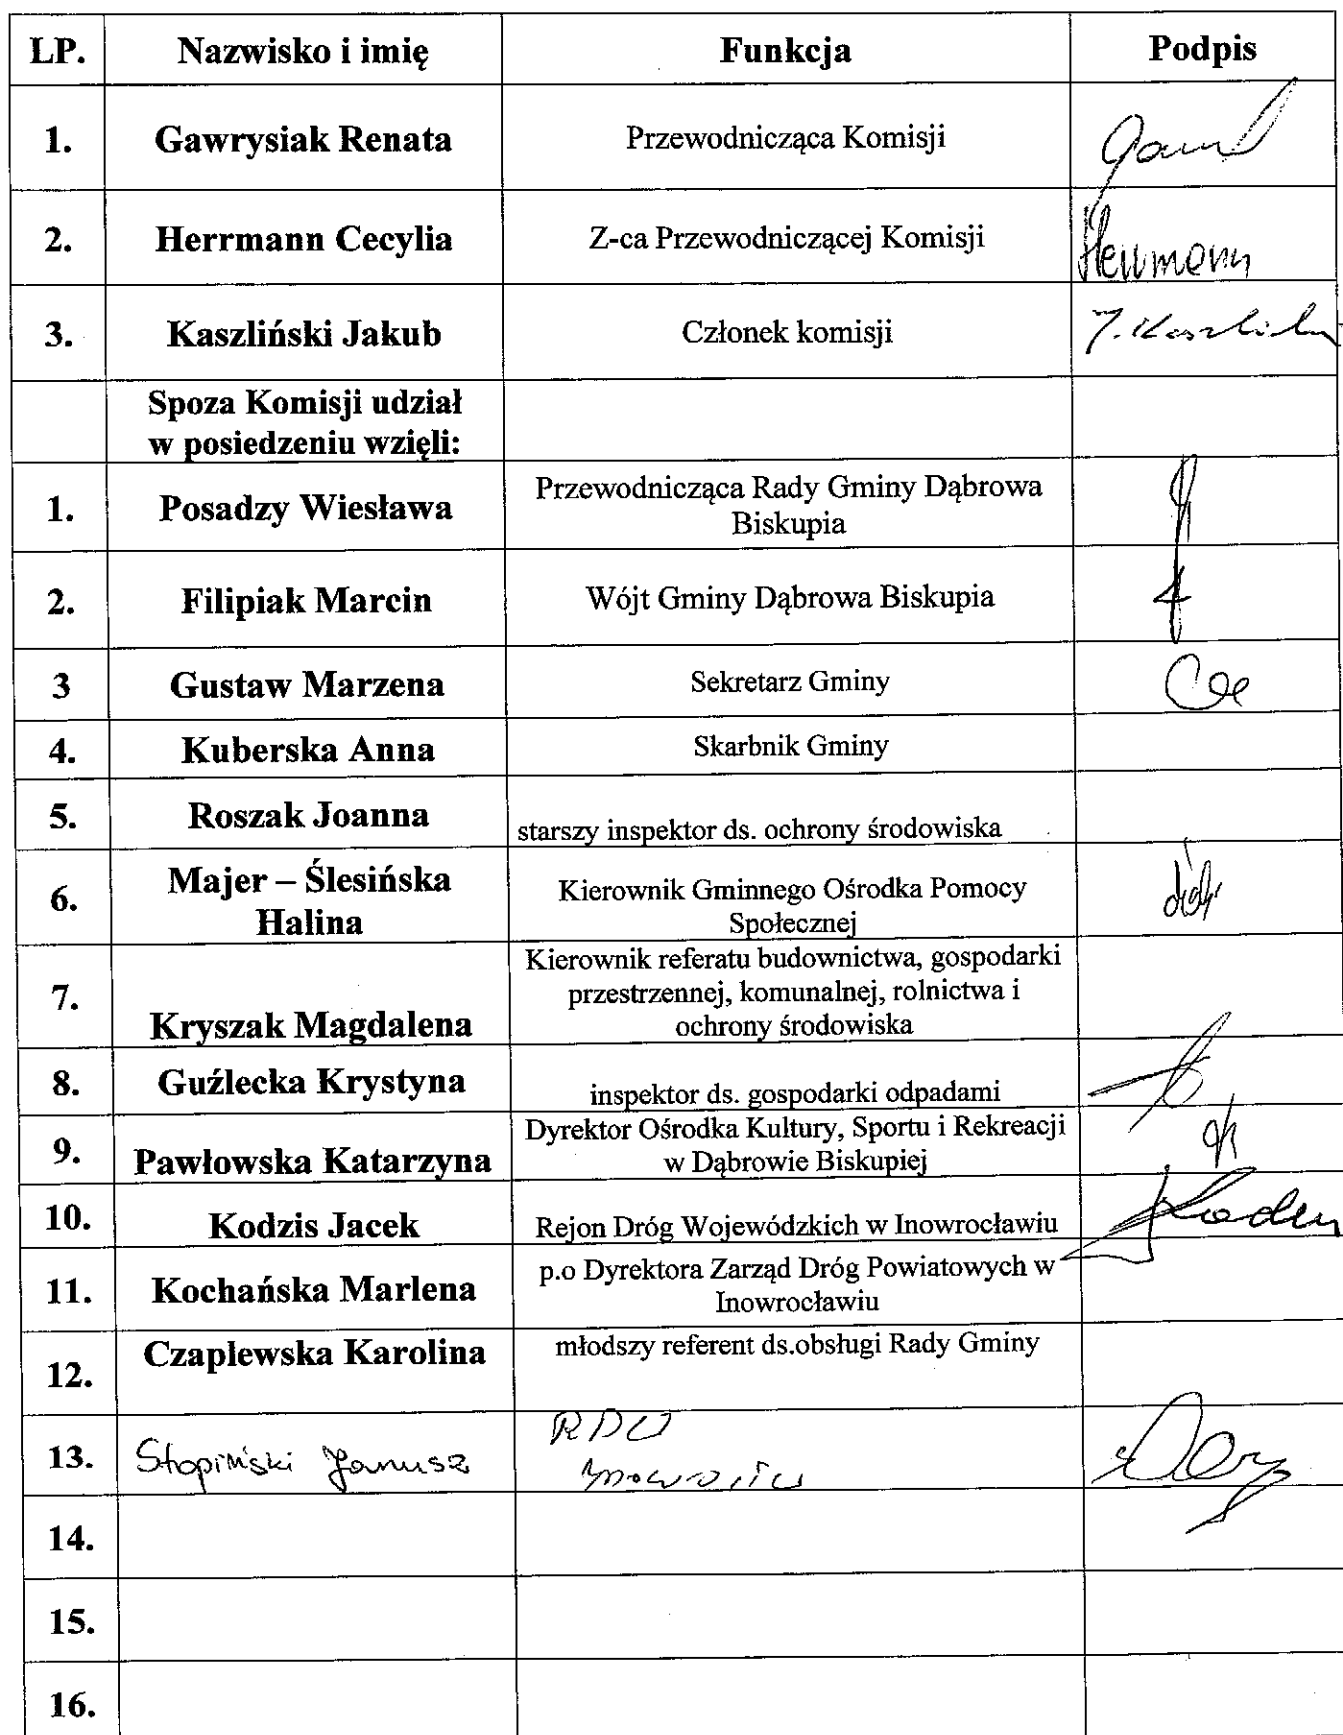 LP. Nazwisko i imię Funkcja Podpis
1. Gawrysiak Renata Przewodnicząca Komisji
2. Herrmann Cecylia Z-ca Przewodniczącej Komisji
3. Kaszliński Jakub Członek komisji
Spoza Komisji udział
w posiedzeniu wzięli:
1. Posadzy Wiesława Przewodnicząca Rady Gminy Dąbrowa
Biskupia
2. Filipiak Marcin Wójt Gminy Dąbrowa Biskupia
3 Gustaw Marzena Sekretarz Gminy
4. Kuberska Anna Skarbnik Gminy
5. Roszak Joanna starszy inspektor ds. ochrony środowiska
6. Majer – Ślesińska
Halina
Kierownik Gminnego Ośrodka Pomocy
Społecznej
7. Kryszak Magdalena
Kierownik referatu budownictwa, gospodarki
przestrzennej, komunalnej, rolnictwa i
ochrony środowiska
8. Guźlecka Krystyna inspektor ds. gospodarki odpadami
9. Pawłowska Katarzyna
Dyrektor Ośrodka Kultury, Sportu i Rekreacji
w Dąbrowie Biskupiej
10. Kodzis Jacek Rejon Dróg Wojewódzkich w Inowrocławiu
11. Kochańska Marlena
p.o Dyrektora Zarząd Dróg Powiatowych w
Inowrocławiu
12. Czaplewska Karolina młodszy referent ds.obsługi Rady Gminy
13. Stopiński Janusz
14.
15.
16.